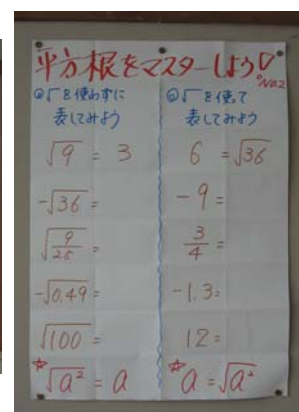 平方根をマスターしよう!
No.2
◎√を使わずに
表してみよう
√9 = 3
-√36 =
√(9/25) =
-√0.49 =
√100 =
☆√a² = a
◎√を使って
表してみよう
6 = √36
-9 =
3/4 =
-1.3 =
12 =
☆a = √a²